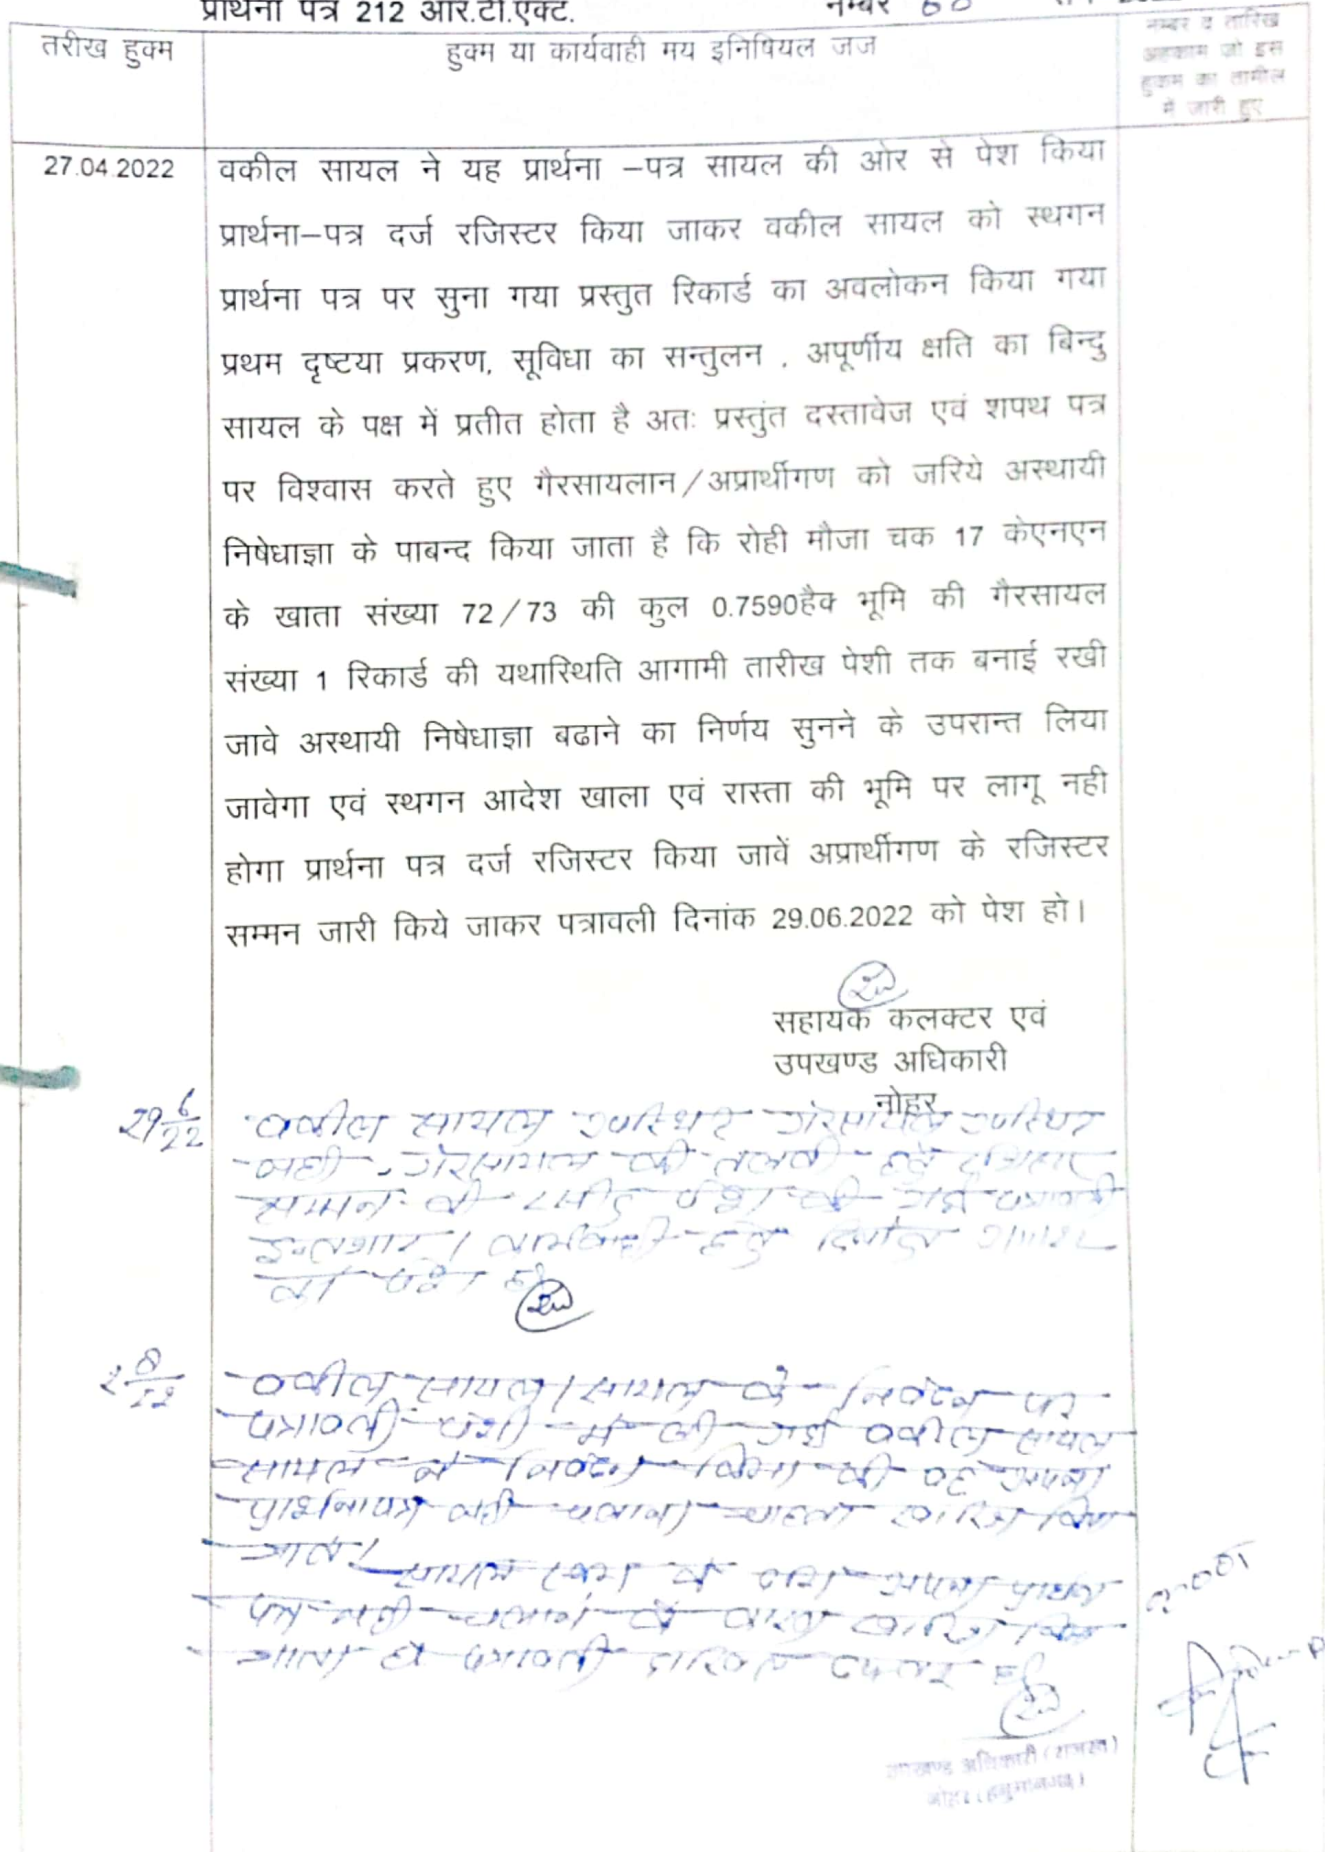 प्रार्थना पत्र 212 आर.टी.एक्ट. नम्बर 60
तरीख हुक्म
हुक्म या कार्यवाही मय इनिषियल जज
नम्बर व तारिख
अहकाम जो इस
हुकम का तामील
में जारी हुए
27.04.2022
वकील सायल ने यह प्रार्थना –पत्र सायल की ओर से पेश किया
प्रार्थना–पत्र दर्ज रजिस्टर किया जाकर वकील सायल को स्थगन
प्रार्थना पत्र पर सुना गया प्रस्तुत रिकार्ड का अवलोकन किया गया
प्रथम दृष्टया प्रकरण, सूविधा का सन्तुलन , अपूर्णीय क्षति का बिन्दु
सायल के पक्ष में प्रतीत होता है अतः प्रस्तुंत दस्तावेज एवं शपथ पत्र
पर विश्वास करते हुए गैरसायलान/अप्रार्थीगण को जरिये अस्थायी
निषेधाज्ञा के पाबन्द किया जाता है कि रोही मौजा चक 17 केएनएन
के खाता संख्या 72/73 की कुल 0.7590हैक भूमि की गैरसायल
संख्या 1 रिकार्ड की यथास्थिति आगामी तारीख पेशी तक बनाई रखी
जावे अस्थायी निषेधाज्ञा बढाने का निर्णय सुनने के उपरान्त लिया
जावेगा एवं स्थगन आदेश खाला एवं रास्ता की भूमि पर लागू नही
होगा प्रार्थना पत्र दर्ज रजिस्टर किया जावें अप्रार्थीगण के रजिस्टर
सम्मन जारी किये जाकर पत्रावली दिनांक 29.06.2022 को पेश हो।
सहायक कलक्टर एवं
उपखण्ड अधिकारी
नोहर
29 6/22
वकील सायल उपस्थित गैरसायल उपस्थित
नही, गैरसायल की तलबी हेतु रजिस्टर्ड
सम्मन की रसीद पेश की गई पत्रावली
इन्तजार / कार्यवाही हेतु दिनांक
को पेश हो
2 8/22
वकील सायल / सायल के निवेदन पर
पत्रावली पेशी में ली गई वकील सायल
सायल ने निवेदन किया की वह अपना
प्रार्थनापत्र नही चलाना चाहता खारिज किया
जावे।
सायल द्वारा अपना प्रार्थना
पत्र नही चलाने के कारण खारिज किया
जाता है पत्रावली दाखिल दफ्तर हो
उपखण्ड अधिकारी (राजस्व)
नोहर (हनुमानगढ़)